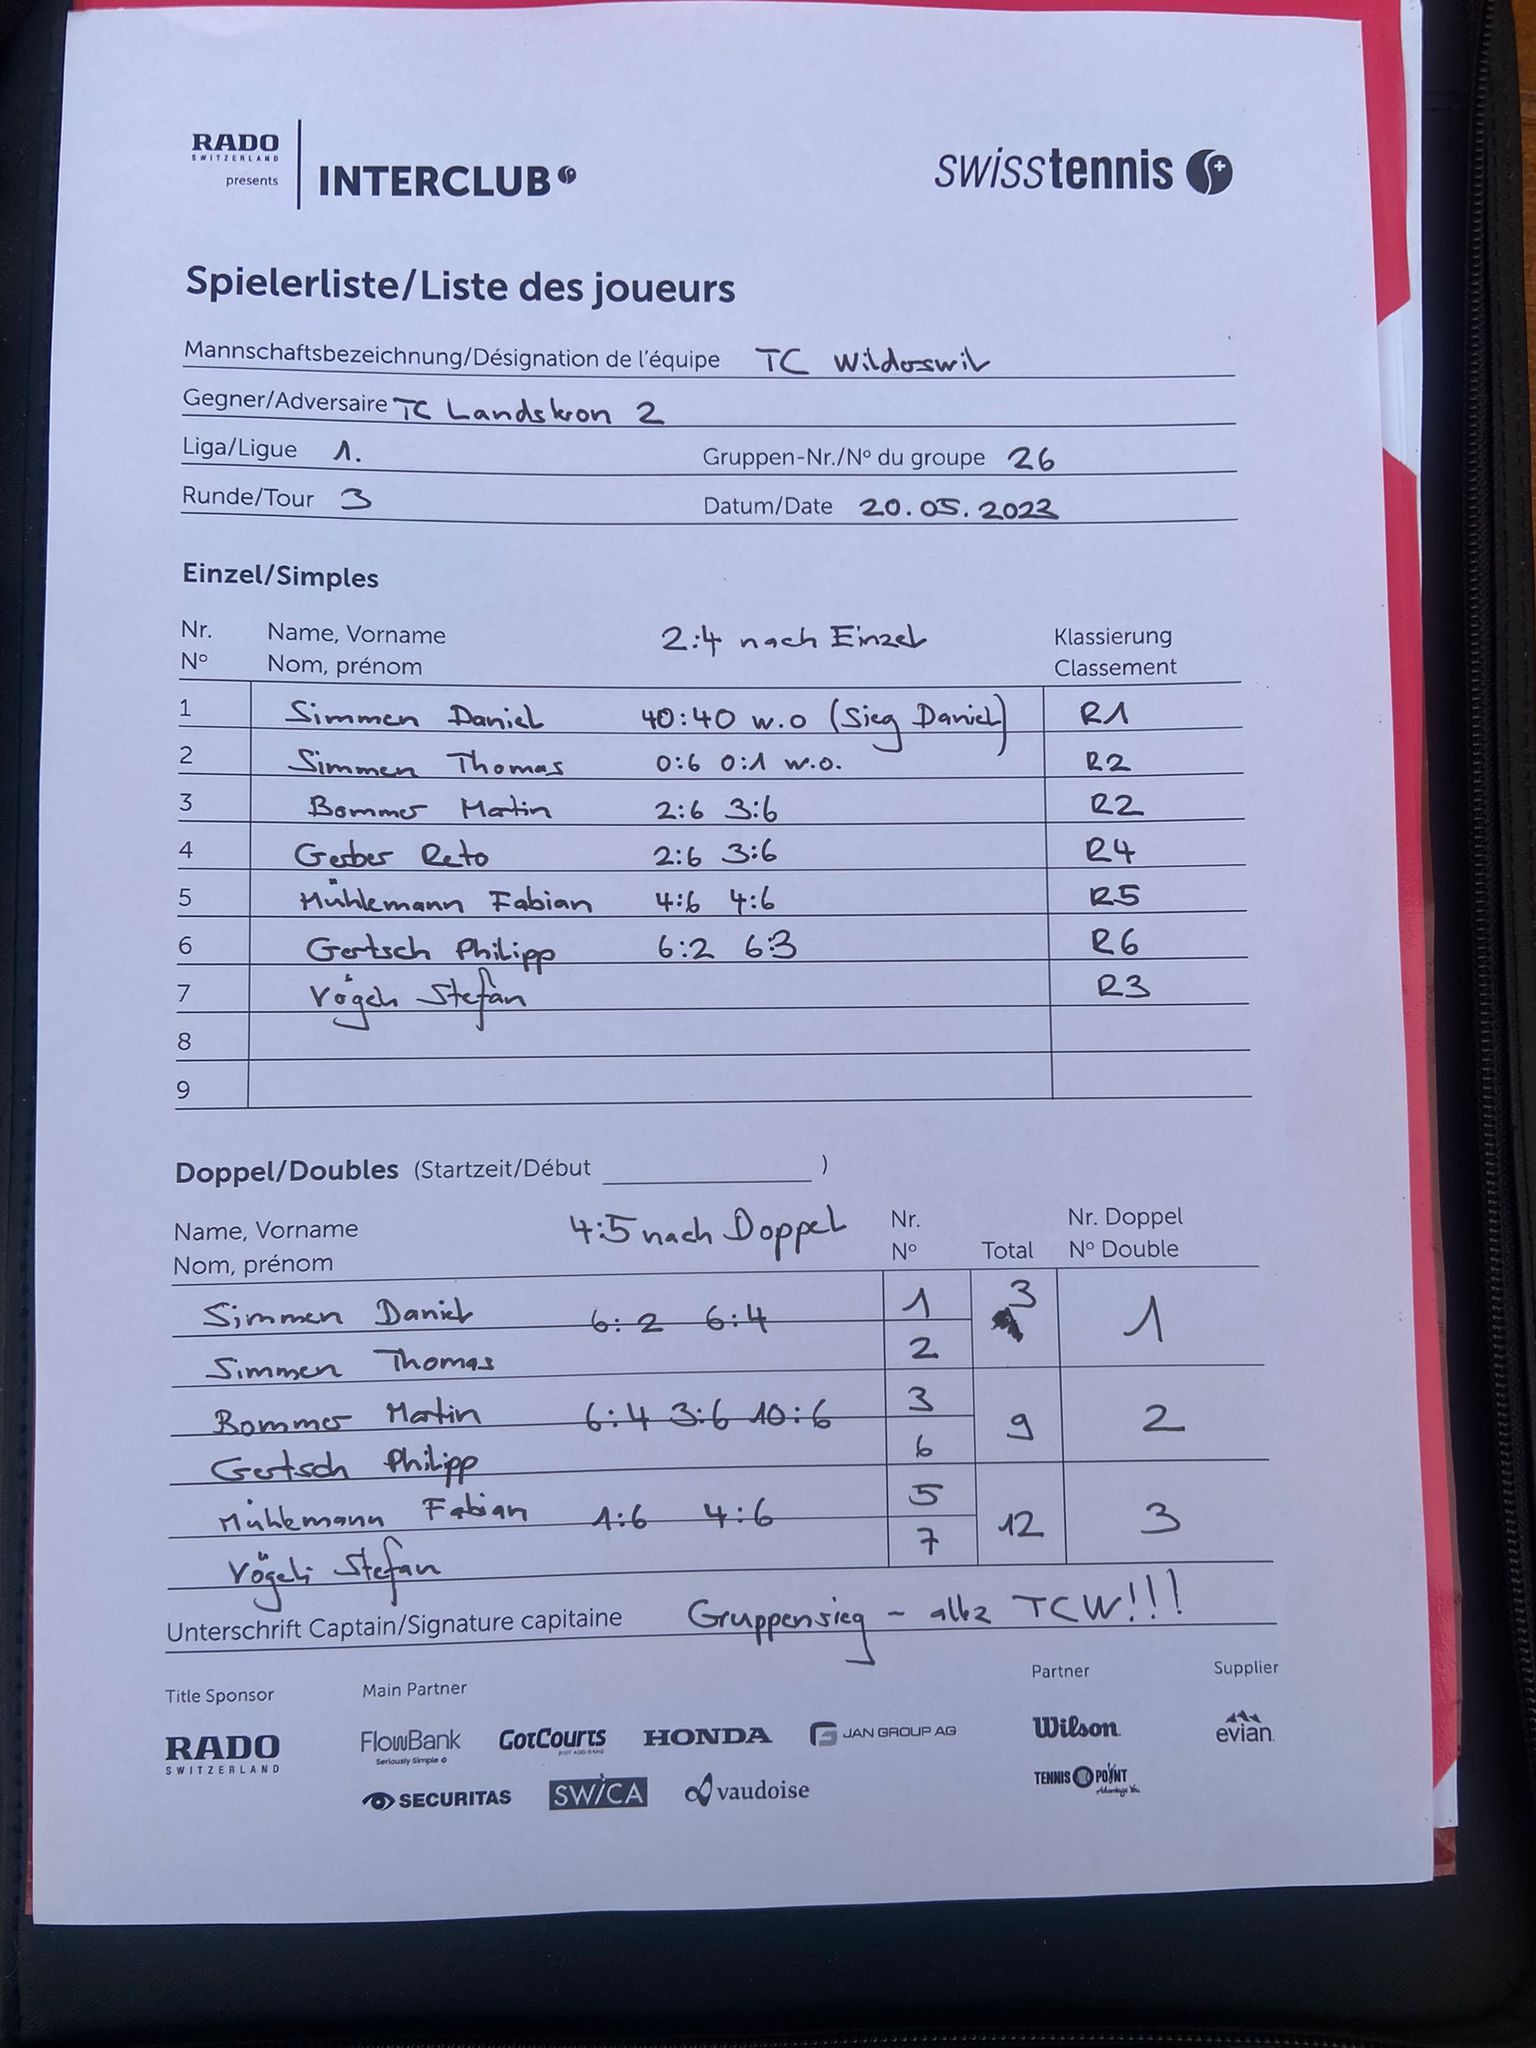 RADO
SWITZERLAND
presents
INTERCLUB
swisstennis
Spielerliste/Liste des joueurs
Mannschaftsbezeichnung/Désignation de l'équipe TC Wilderswil
Gegner/Adversaire TC Landskron 2
Liga/Ligue 1. Gruppen-Nr./Nº du groupe 26
Runde/Tour 3 Datum/Date 20.05.2023
Einzel/Simples
Nr. Name, Vorname 2:4 nach Einzel Klassierung
Nº Nom, prénom Classement
1 Simmen Daniel 40:40 w.o (Sieg Daniel) R1
2 Simmen Thomas 0:6 0:1 w.o. R2
3 Bommer Martin 2:6 3:6 R2
4 Gerber Reto 2:6 3:6 R4
5 Mühlemann Fabian 4:6 4:6 R5
6 Gertsch Philipp 6:2 6:3 R6
7 Vögeli Stefan R3
8
9
Doppel/Doubles (Startzeit/Début )
Name, Vorname 4:5 nach Doppel Nr. Nr. Doppel
Nom, prénom Nº Total Nº Double
Simmen Daniel 6:2 6:4 1 3 1
Simmen Thomas 2
Bommer Martin 6:4 3:6 10:6 3 9 2
Gertsch Philipp 6
Mühlemann Fabian 1:6 4:6 5 12 3
Vögeli Stefan 7
Unterschrift Captain/Signature capitaine Gruppensieg - allez TCW!!!
Title Sponsor Main Partner Partner Supplier
RADO
SWITZERLAND
FlowBank
Seriously Simple
GotCourts
HONDA
JAN GROUP AG
Wilson
evian
SECURITAS
SWICA
vaudoise
TENNIS POINT
Advantage You